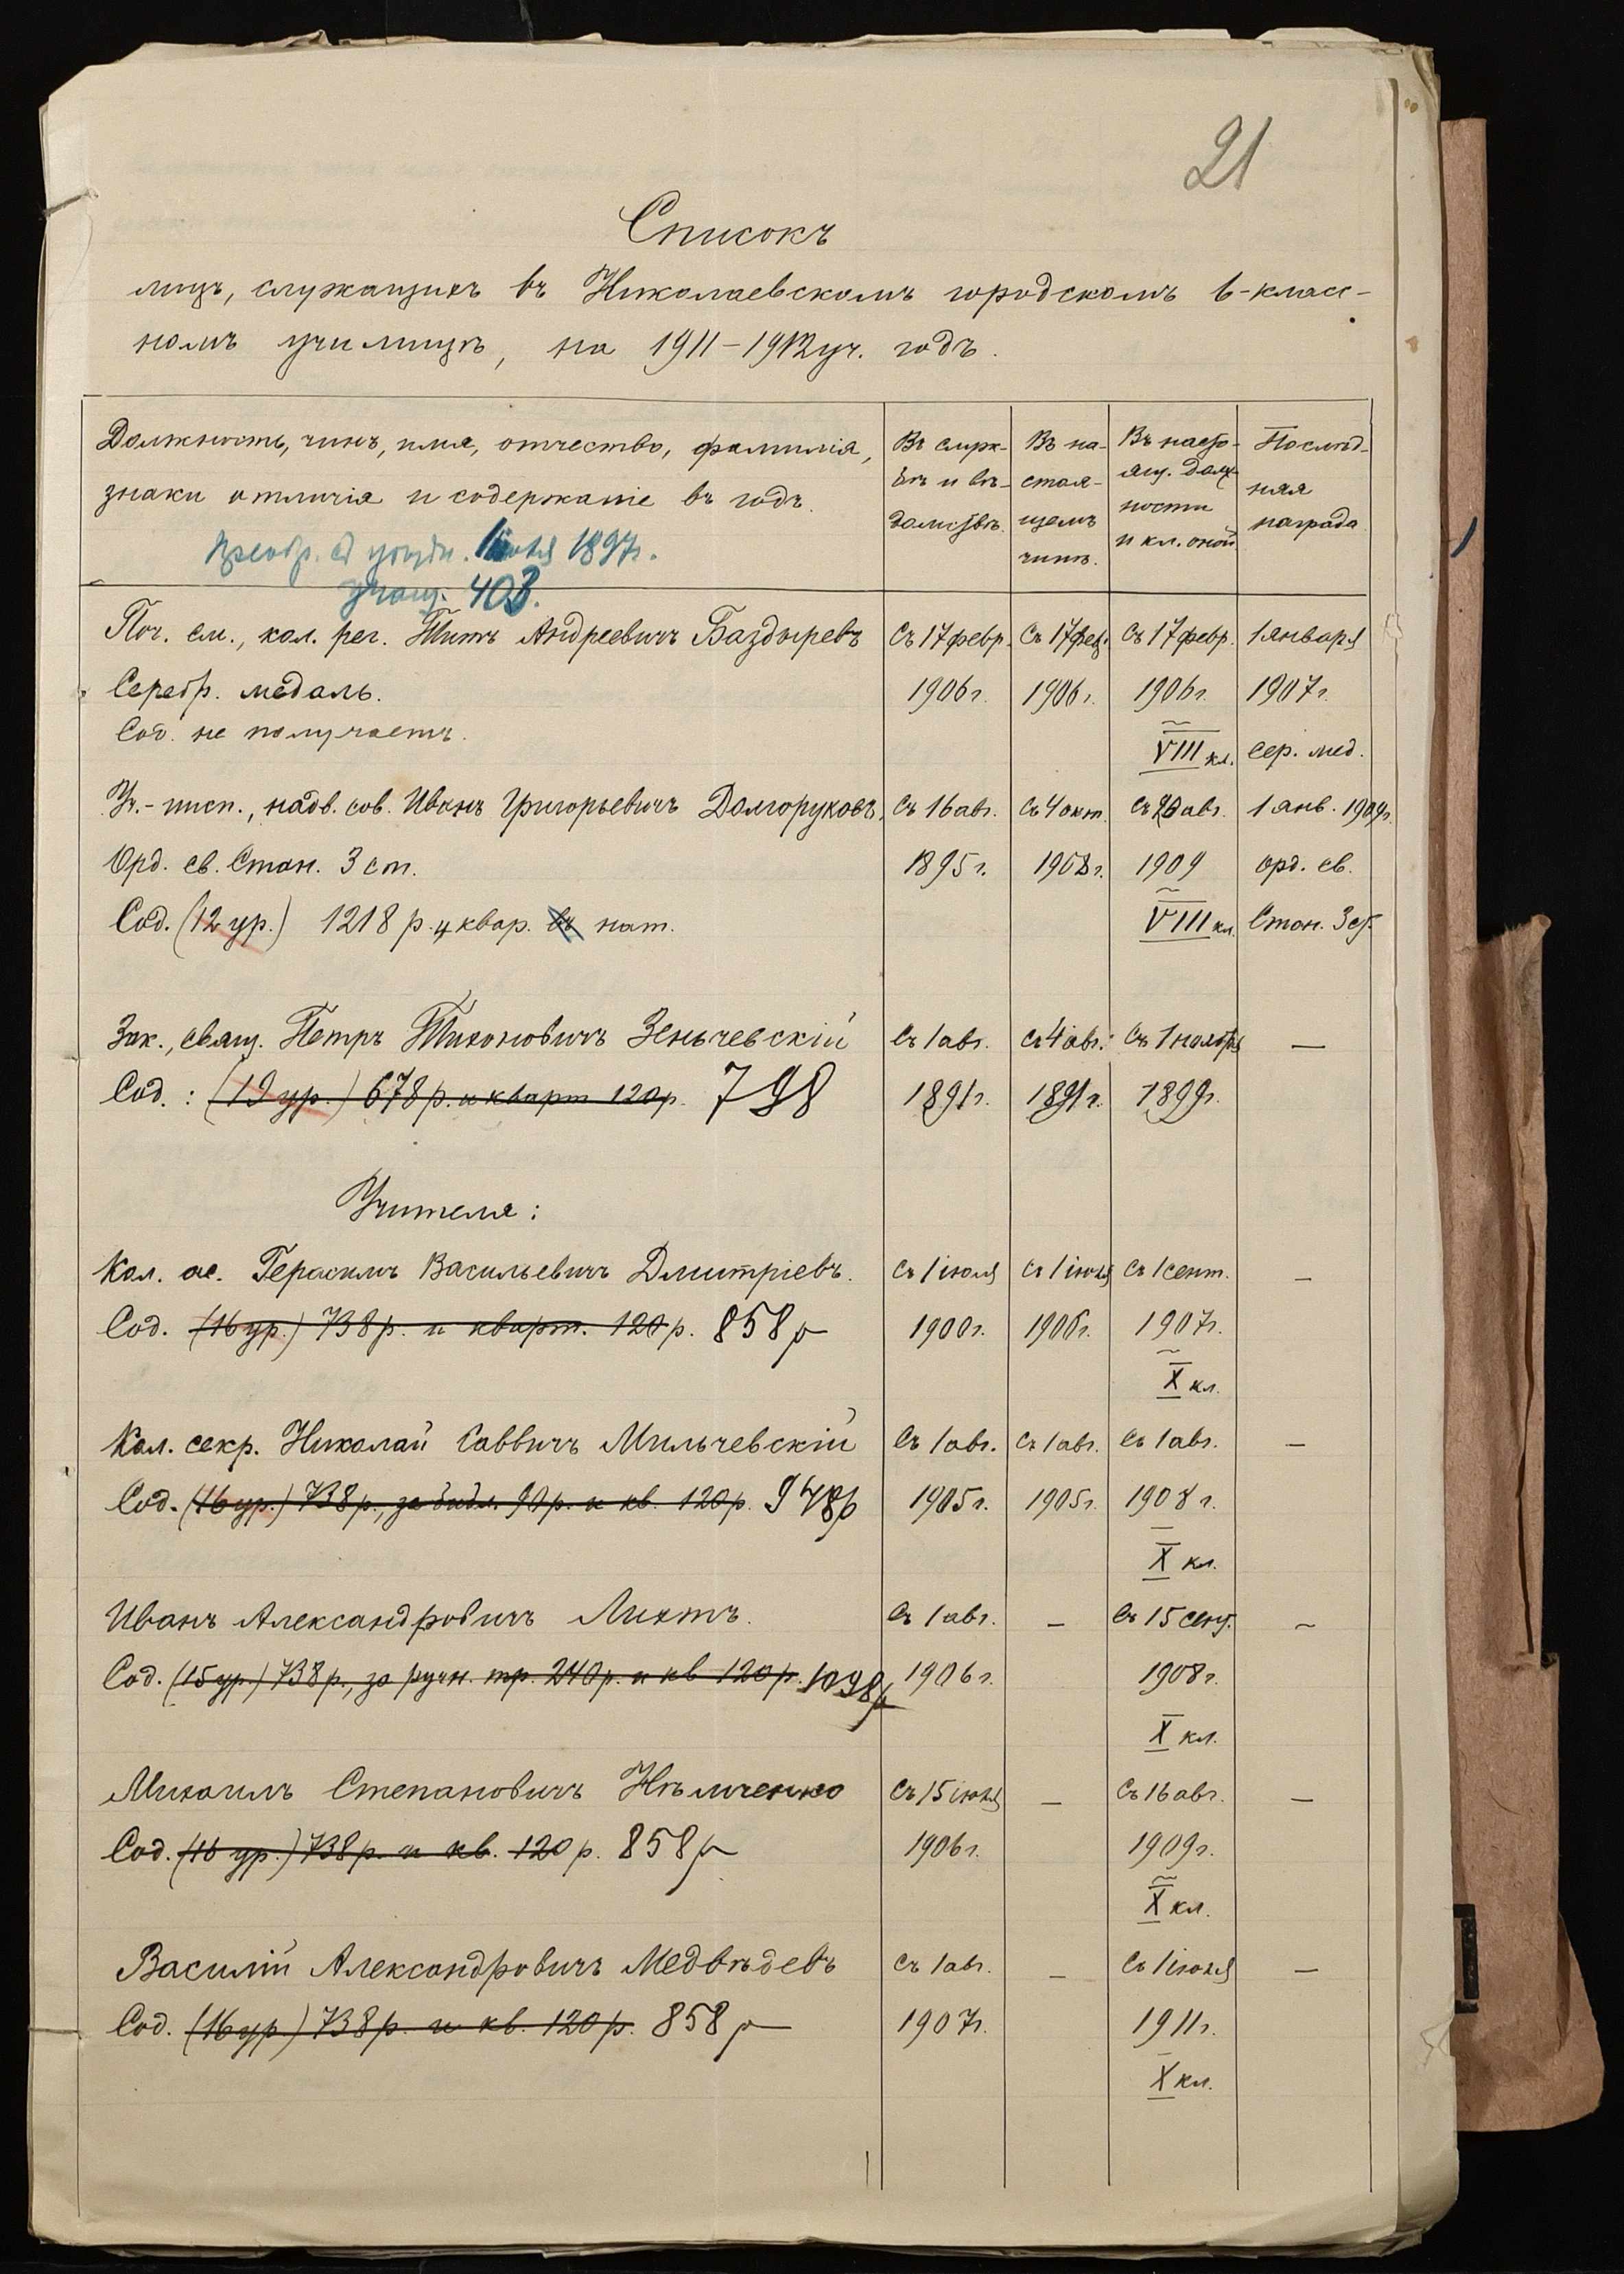 21
Списокъ
лицъ, служащихъ въ Николаевскомъ городскомъ 6-класс-
номъ училищѣ, на 1911-1912 уч. годъ.
Должность, чинъ, имя, отчество, фамилія,
знаки отличія и содержаніе въ годъ.
Въ служ-
бѣ и вѣ-
домствѣ.
Въ на-
стоя-
щемъ
чинѣ.
Въ насто-
ящ. долж-
ности
и кл. оной
Послѣд-
няя
награда
1 іюля 1897г.
учащ. 403.
Поч. см., кол. рег. Титъ Андреевичъ Баздыревъ Съ 17 февр. Съ 17 фев. Съ 17 февр. 1 января
Серебр. медаль. 1906 г. 1906 г. 1906 г. 1907 г.
Сод. не получаетъ. VIII кл. сер. мед.
Уч.-инсп., надв. сов. Иванъ Григорьевичъ Долгоруковъ, Съ 16 авг. Съ 4 окт. Съ авг. 1 янв. 1909 г.
Орд. св. Стан. 3 ст. 1895 г. 1908 г. 1909 орд. св.
Сод. (12 ур.) 1218 р. и квар. въ нат. VIII кл. Стан. 3 ст.
Зак., свящ. Петръ Тихоновичъ Зенычевскій Съ 1 авг. Съ 4 авг. Съ 1 ноября —
Сод.: (19 ур.) 678 р. и кварт 120 р. 798 1891 г. 1891 г. 1899 г.
Учителя:
Кол. ас. Герасимъ Васильевичъ Дмитріевъ. Съ 1 іюля Съ 1 іюля Съ 1 сент. —
Сод. (16 ур.) 738 р. и кварт. 120 р. 858 р 1900 г. 1906 г. 1907 г.
X кл.
Кол. секр. Николай Саввичъ Мильчевскій Съ 1 авг. Съ 1 авг. Съ 1 авг. —
Сод. (16 ур.) 738 р., за библ. 90 р. и кв. 120 р. 948 р 1905 г. 1905 г. 1908 г.
X кл.
Иванъ Александровичъ Лихтъ. Съ 1 авг. — Съ 15 сент. —
Сод. (15 ур.) 738 р., за ручн. тр. 240 р. и кв 120 р. 1098 р 1906 г. 1908 г.
X кл.
Михаилъ Степановичъ Нѣмченко Съ 15 іюля — Съ 16 авг. —
Сод. (16 ур.) 738 р. и кв. 120 р. 858 р 1906 г. 1909 г.
X кл.
Василій Александровичъ Медвѣдевъ Съ 1 авг. — Съ 1 іюля —
Сод. (16 ур.) 738 р. и кв. 120 р. 858 р 1907 г. 1911 г.
X кл.